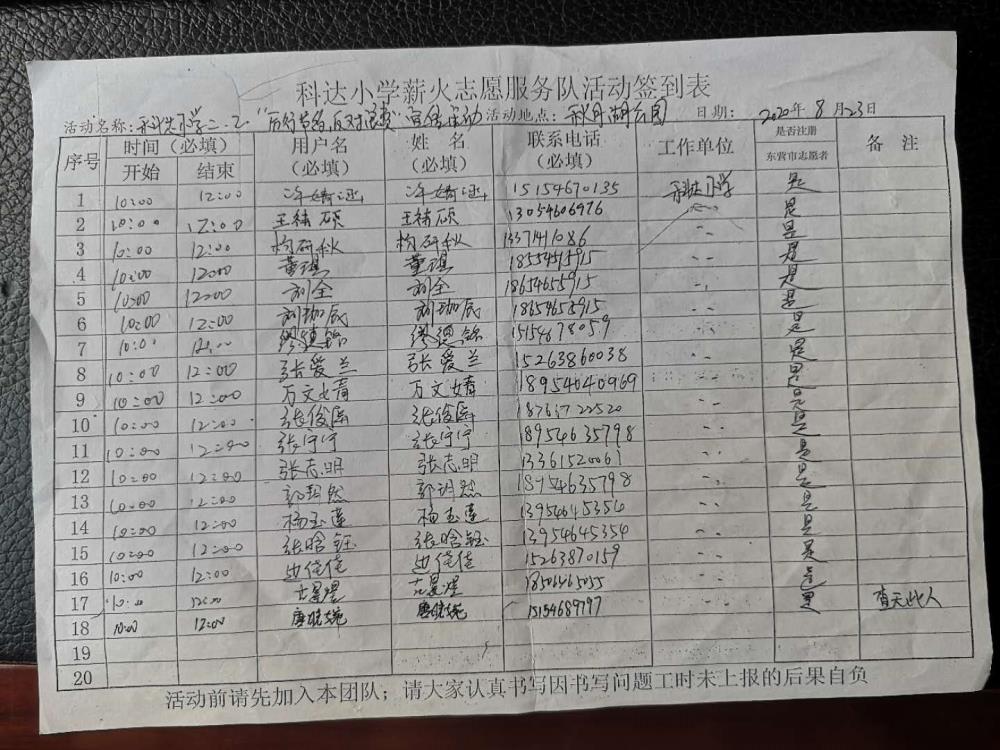 科达小学薪火志愿服务队活动签到表
活动名称：科达小学二.2"厉行节约,反对浪费"宣传活动 活动地点：秋月湖公园 日期：2020年8月23日
序号 时间（必填） 用户名（必填） 姓名（必填） 联系电话（必填） 工作单位 是否注册东营市志愿者 备注
开始 结束
1 10:00 12:00 15154670135 科达小学 是
2 10:00 12:00 王赫硕 王赫硕 13054606976 是
3 10:00 12:00 1337141086 是
4 10:00 12:00 董琪 董琪 是
5 10:00 12:00 刘全 刘全 18654655915 是
6 10:00 12:00 刘珈辰 刘珈辰 是
7 10:00 12:00 15154678059 是
8 10:00 12:00 张爱兰 张爱兰 15263860038 是
9 10:00 12:00 万文婧 万文婧 18954640969 是
10 10:00 12:00 18761722520 是
11 10:00 12:00 张宁宁 张宁宁 18954635798 是
12 10:00 12:00 张志明 张志明 13361520061 是
13 10:00 12:00 郭玥然 郭玥然 18954635798 是
14 10:00 12:00 杨玉莲 杨玉莲 13954645354 是
15 10:00 12:00 张晗钰 张晗钰 13954645354 是
16 10:00 12:00 边佳佳 边佳佳 15263870159 是
17 10:00 12:00 18506465035 是 查无此人
18 10:00 12:00 唐晓婉 唐晓婉 15154689797
19
20
活动前请先加入本团队；请大家认真书写因书写问题工时未上报的后果自负